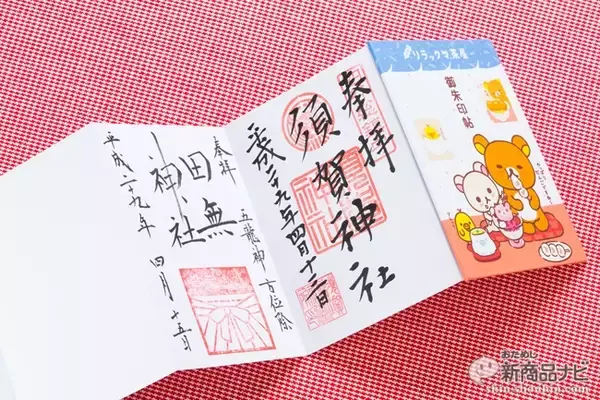 リラックマ茶屋
御朱印帖
奉拝
須賀神社
平成二十九年四月十二日
奉拝
五龍神方位除
田無神社
平成二十九年 四月 十五日
おためし
新商品ナビ